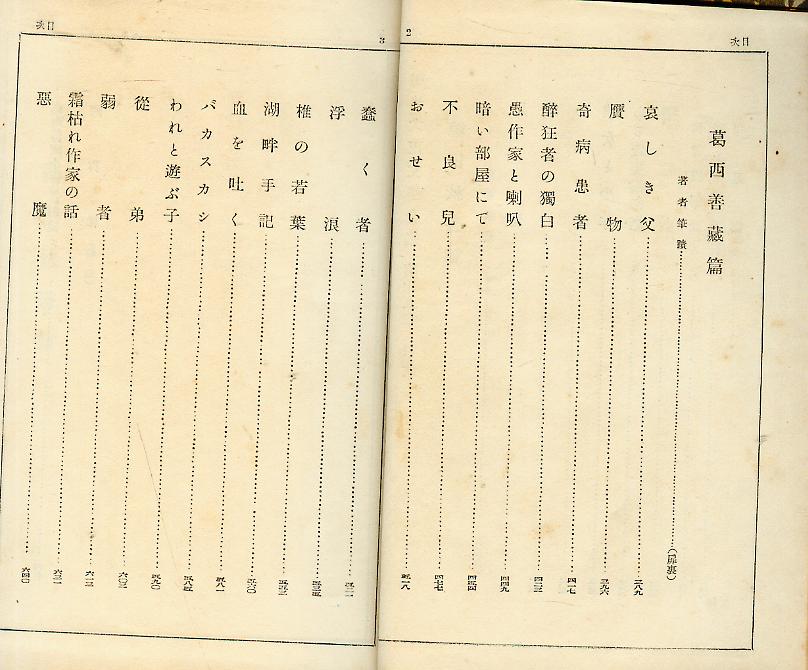 目次
2
葛西善藏篇
著者筆蹟 (扉裏)
哀しき父 三八九
贋物 三九六
奇病患者 四一七
醉狂者の獨白
愚作家と喇叭 四四九
暗い部屋にて
不良兒 四七七
おせい 五一八
目次
3
蠢く者 五二一
浮浪
椎の若葉
湖畔手記 五六〇
血を吐く 五八一
バカスカシ 五八五
われと遊ぶ子 五九〇
從弟 六〇三
弱者 六一三
霜枯れ作家の話
惡魔 六四〇